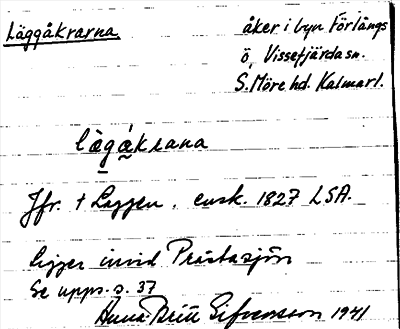 Läggåkrarna
åker i byn Förlångs
ö, Vissefjärda sn.
S. Möre hd. Kalmar l.
lägåkrana
Jfr. † Laggen, ensk. 1827 LSA.
ligger invid Prästasjön
Se upps. s. 37
Anna-Britt Sifvensson 1941